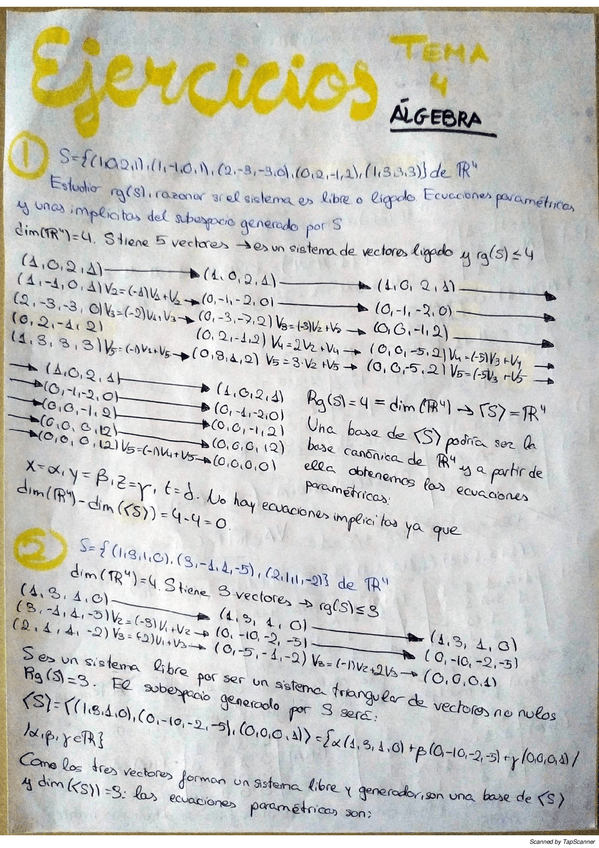 Ejercicios TEMA 4
ÁLGEBRA
1 S={(1,0,2,1),(1,-1,0,1),(2,-3,-3,0),(0,2,-1,2),(1,3,3,3)} de ℝ⁴
Estudiar rg(S), razonar si el sistema es libre o ligado. Ecuaciones paramétricas
y unas implícitas del subespacio generado por S
dim(ℝ⁴)=4. S tiene 5 vectores → es un sistema de vectores ligado y rg(S) ≤ 4
(1,0,2,1) → (1,0,2,1) → (1,0,2,1) →
(1,-1,0,1) V₂=(-1)V₁+V₂ → (0,-1,-2,0) → (0,-1,-2,0) →
(2,-3,-3,0) V₃=(-2)V₁+V₃ → (0,-3,-7,2) V₃=(-3)V₂+V₃ → (0,0,-1,2) →
(0,2,-1,2) (0,2,-1,2) V₄=2V₂+V₄ → (0,0,-5,2) V₄=(-5)V₃+V₄ →
(1,3,3,3) V₅=(-1)V₁+V₅ → (0,3,1,2) V₅=3·V₂+V₅ → (0,0,-5,2) V₅=(-5)V₃+V₅ →
→ (1,0,2,1) → (1,0,2,1)
→ (0,-1,-2,0) → (0,-1,-2,0)
→ (0,0,-1,2) → (0,0,-1,2)
→ (0,0,0,12) → (0,0,0,12)
→ (0,0,0,12) V₅=(-1)V₄+V₅ → (0,0,0,0)
Rg(S)=4 = dim(ℝ⁴) → ⟨S⟩=ℝ⁴
Una base de ⟨S⟩ podría ser la
base canónica de ℝ⁴ y a partir de
ella obtenemos las ecuaciones
paramétricas:
x=α, y=β, z=γ, t=δ. No hay ecuaciones implícitas ya que
dim(ℝ⁴)-dim(⟨S⟩)=4-4=0.
2 S={(1,3,1,0),(3,-1,1,-5),(2,1,1,-2)} de ℝ⁴
dim(ℝ⁴)=4. S tiene 3 vectores → rg(S)≤3
(1,3,1,0) → (1,3,1,0) → (1,3,1,0)
(3,-1,1,-5) V₂=(-3)V₁+V₂ → (0,-10,-2,-5) → (0,-10,-2,-5)
(2,1,1,-2) V₃=(-2)V₁+V₃ → (0,-5,-1,-2) V₃=(-1)V₂+2V₃ → (0,0,0,1)
S es un sistema libre por ser un sistema triangular de vectores no nulos
Rg(S)=3. El subespacio generado por S será:
⟨S⟩=⟨(1,3,1,0),(0,-10,-2,-5),(0,0,0,1)⟩={α(1,3,1,0)+β(0,-10,-2,-5)+γ(0,0,0,1)/
/α,β,γ∈ℝ}
Como los tres vectores forman un sistema libre y generador, son una base de ⟨S⟩
y dim(⟨S⟩)=3: las ecuaciones paramétricas son:
Scanned by TapScanner